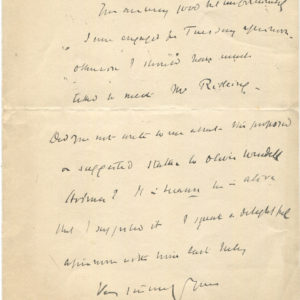 You are very good but unfortunately
I am engaged for Tuesday afternoon
otherwise I should have much
liked to meet Mr Rideing.
Did you not write to me about this proposed
or suggested statue to Oliver Wendell
Holmes? It is because he is alive
that I suggested it. I spent a delightful
afternoon with him last July
Very sincerely yours